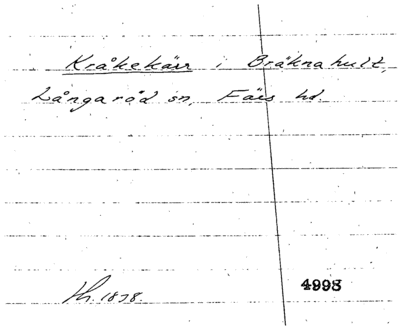 Kråkekärr i Bråknahult,
Långaröd sn, Färs hd.
Th. 1838.
4998